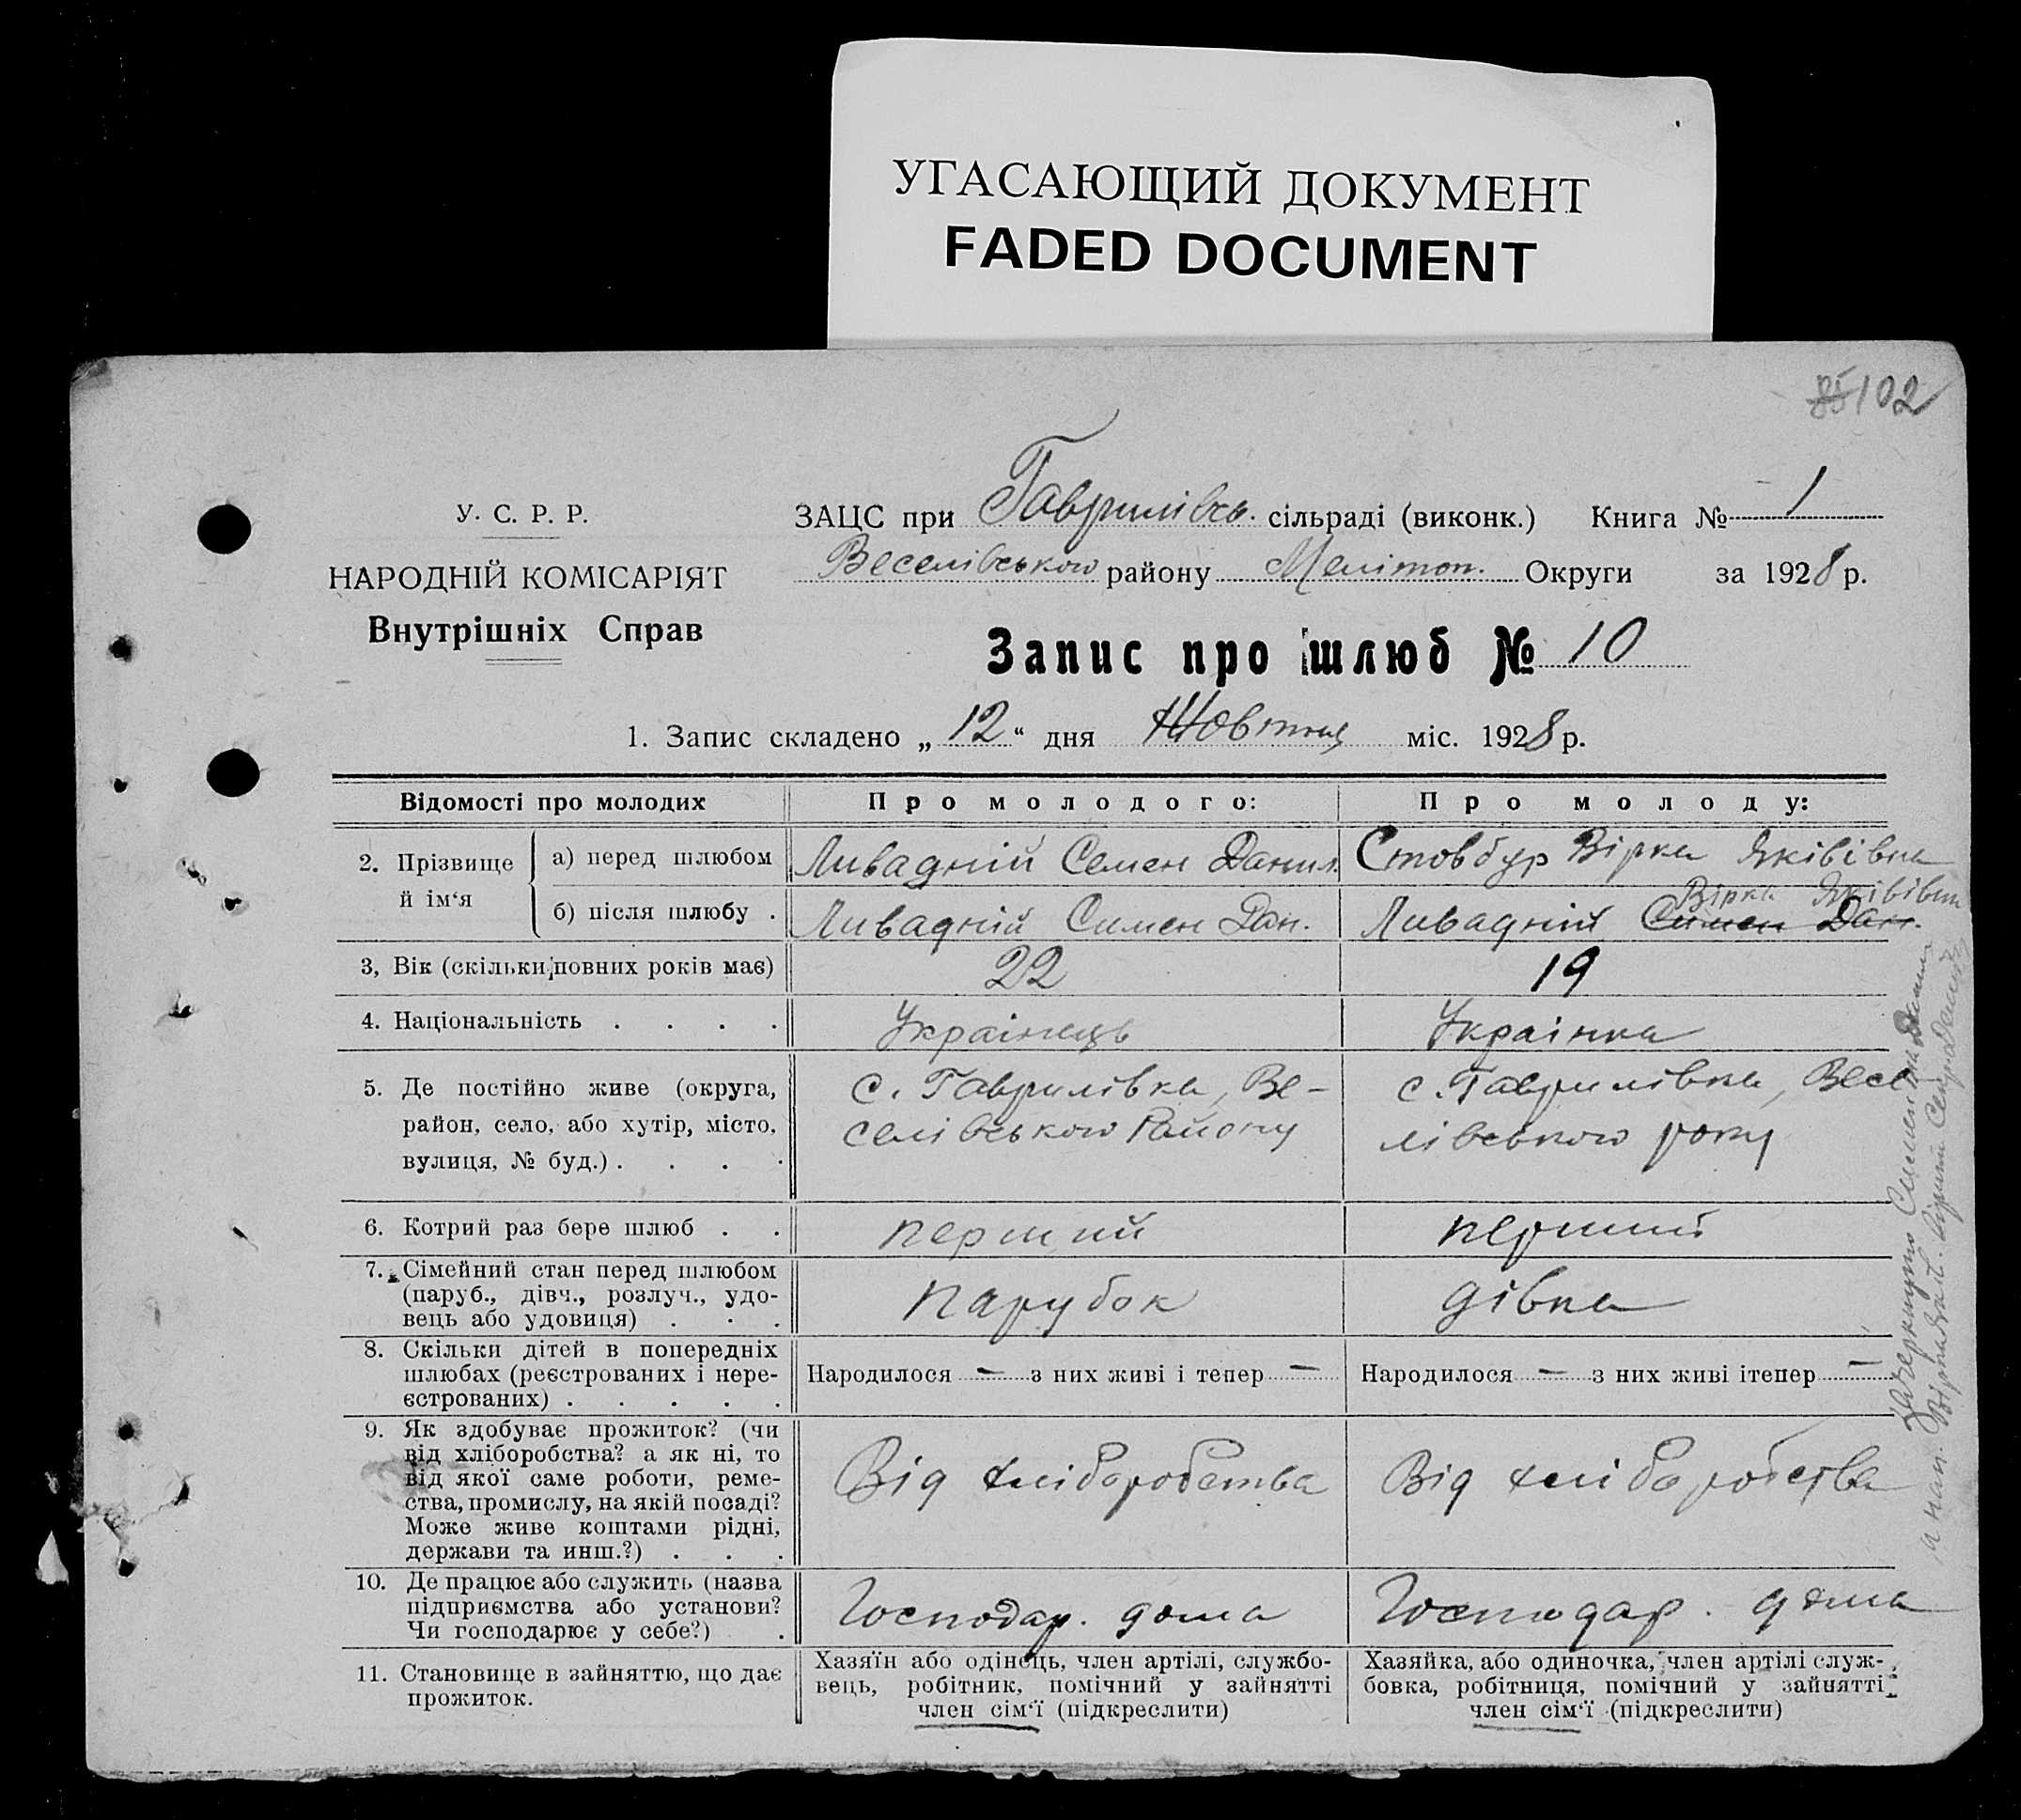 УГАСАЮЩИЙ ДОКУМЕНТ
FADED DOCUMENT
85 102
У. С. Р. Р.
НАРОДНІЙ КОМІСАРІЯТ
Внутрішніх Справ
ЗАЦС при Гаврилівсь. сільраді (виконк.) Книга № 1
Веселівського району Мелітоп. Округи за 1928 р.
Запис про шлюб № 10
1. Запис складено „ 12 “ дня Жовтня міс. 1928 р.
Відомості про молодих Про молодого: Про молоду:
2. Прізвище й ім‘я
а) перед шлюбом Ливадній Семен Данил. Стовбур Вірка Яківівна
Вірка Яківівн
б) після шлюбу . Ливадній Симен Дан. Ливадній Симен Дан.
3, Вік (скільки повних років має) 22 19
4. Національність . . . . Украінець Украінка
5. Де постійно живе (округа,
район, село, або хутір, місто,
вулиця, № буд.) . . . .
с. Гаврилівка, Ве-
селівського Району
с. Гаврилівка, Весе
лівського рону
6. Котрий раз бере шлюб . . перший перший
7. Сімейний стан перед шлюбом
(паруб., дівч., розлуч., удо-
вець або удовиця) . . .
парубок дівка
8. Скільки дітей в попередніх
шлюбах (реєстрованих і нере-
єстрованих) . . . . .
Народилося — з них живі і тепер — Народилося — з них живі ітепер —
9. Як здобуває прожиток? (чи
від хліборобства? а як ні, то
від якої саме роботи, реме-
ства, промислу, на якій посаді?
Може живе коштами рідні,
держави та инш.?) . . .
Від хліборобства Від хліборобства
10. Де працює або служить (назва
підприємства або установи?
Чи господарює у себе?) .
Господар. дома Господар. дома
11. Становище в зайняттю, що дає
прожиток.
Хазяїн або одінець, член артілі, службо-
вець, робітник, помічний у зайнятті
член сім‘ї (підкреслити)
Хазяйка, або одиночка, член артілі служ-
бовка, робітниця, помічний у зайнятті
член сім‘ї (підкреслити)
Зачеркнуто Симен
а нап. Вірка Яків.